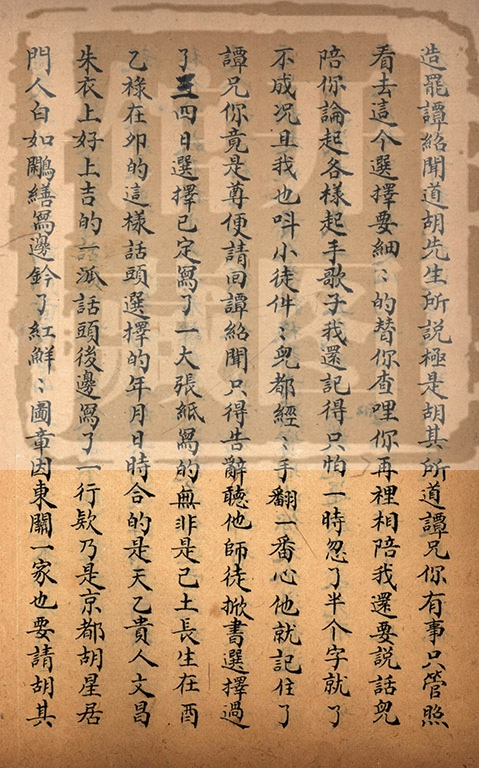 造罷譚紹聞道胡先生所説極是胡其所道譚兄你有事只管照
看去這个選擇要細〻的替你查哩你再裡相陪我還要説話兒
陪你論起各樣起手歌子我還記得只怕一時忽了半个字就了
不成况且我也呌小徒件〻兒都經〻手翻一番心他就記住了
譚兄你竟是尊便請回譚紹聞只得告辭聽他師徒掀書選擇過
了三四日選擇已定寫了一大張紙寫的無非是己土長生在酉
乙祿在夘的這樣話頭選擇的年月日時合的是天乙貴人文昌
朱衣上好上吉的一派話頭後邊寫了一行欵乃是京都胡星居
門人白如鷳繕寫邊鈐了紅鮮〻圖章因東關一家也要請胡其